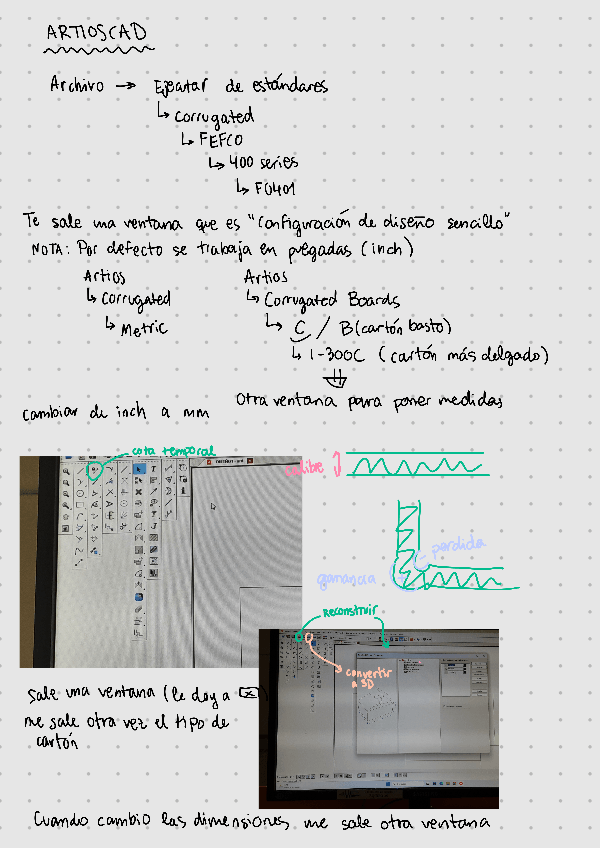 ARTIOSCAD
Archivo → Ejecutar de estándares
↳ Corrugated
↳ FEFCO
↳ 400 series
↳ F0401
Te sale una ventana que es "Configuración de diseño sencillo"
NOTA: Por defecto se trabaja en pulgadas (inch)
Artios
↳ Corrugated
↳ Metric
Artios
↳ Corrugated Boards
↳ C / B (cartón basto)
↳ 1-300C (cartón más delgado)
Otra ventana para poner medidas
cambiar de inch a mm
cota temporal
calibre
perdida
ganancia
Reconstruir
convertir a 3D
Sale una ventana (le doy a ☒)
me sale otra vez el tipo de
cartón
Cuando cambio las dimensiones, me sale otra ventana